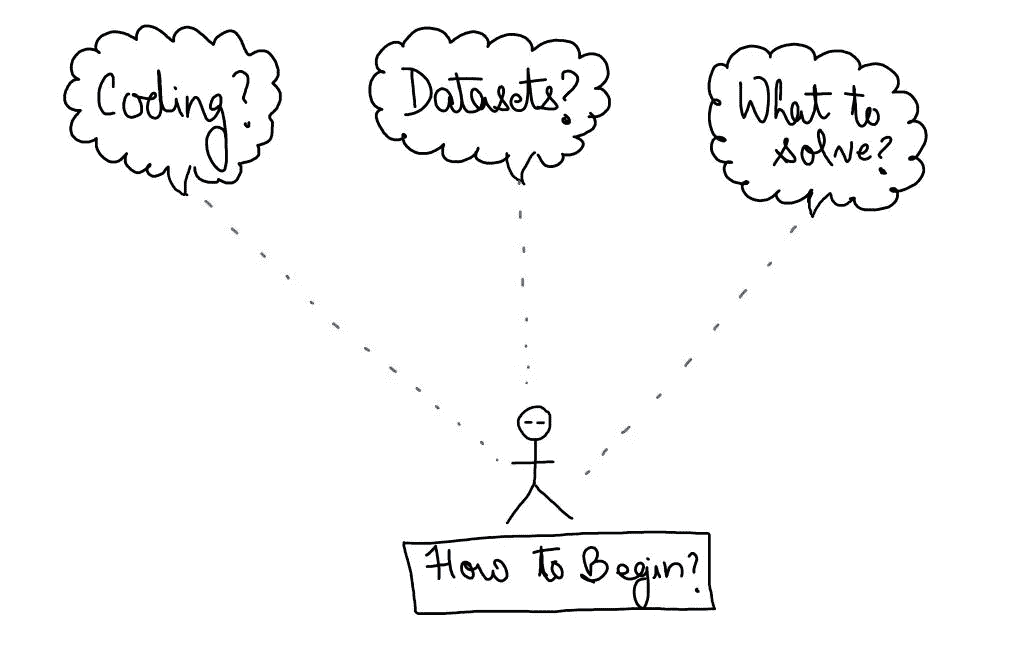 Coding?
Datasets?
What to
solve?
How to Begin?